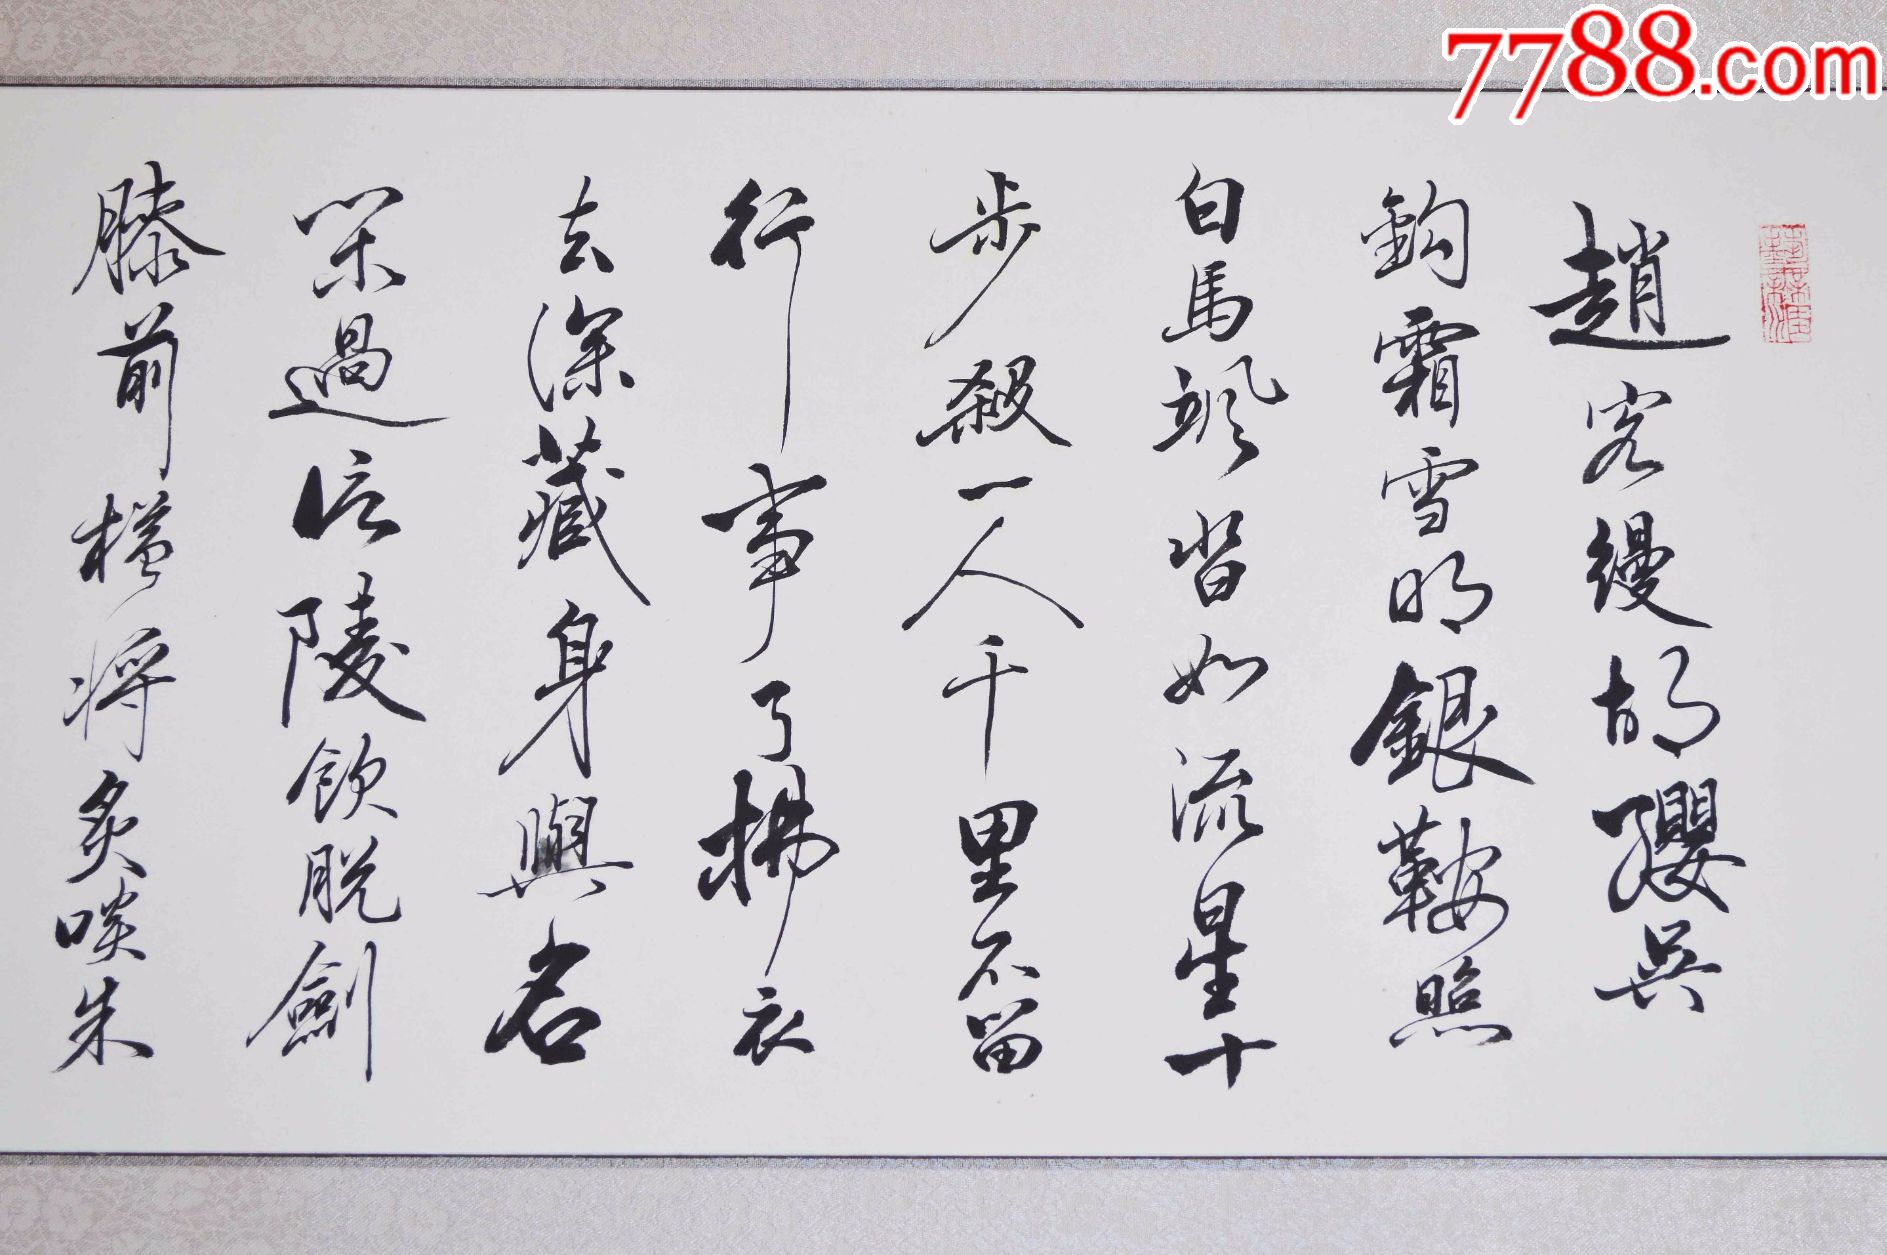 7788.com
趙客縵胡纓吳
鈎霜雪明銀鞍照
白馬颯沓如流星十
步殺一人千里不留
行事了拂衣
去深藏身與名
閑過信陵飲脫劍
膝前橫將炙啖朱